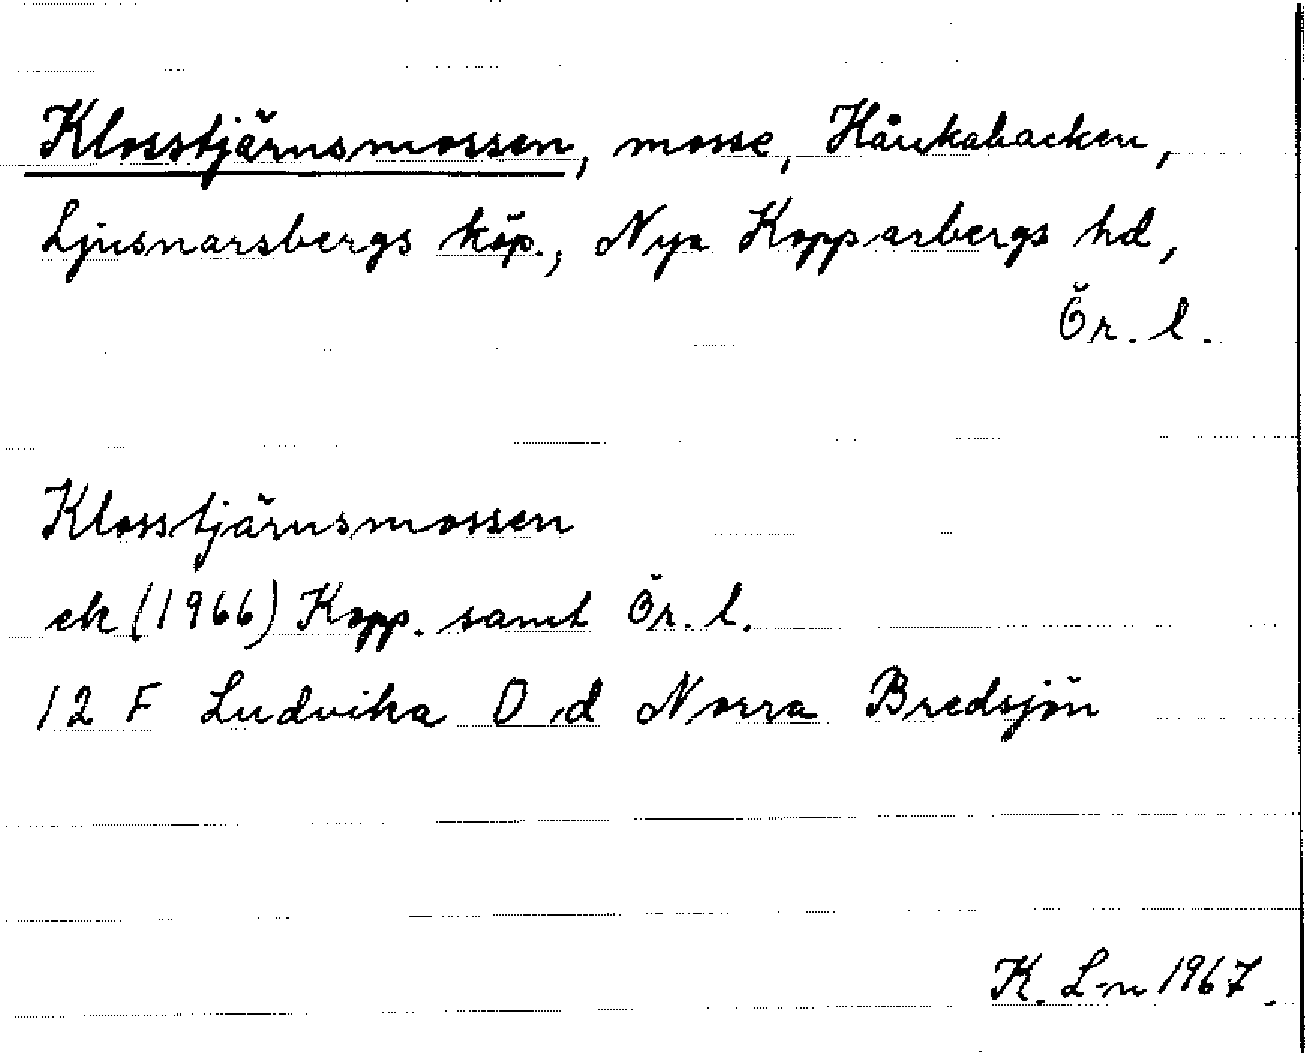 Klosstjärnsmossen, mosse, Hånkabacken,
Ljusnarsbergs köp., Nya Kopparbergs hd,
Ör. l.
Klosstjärnsmossen
ek (1966) Kopp. samt Ör. l.
12 F Ludvika 0 d Norra Bredsjön
K. L-n 1967.